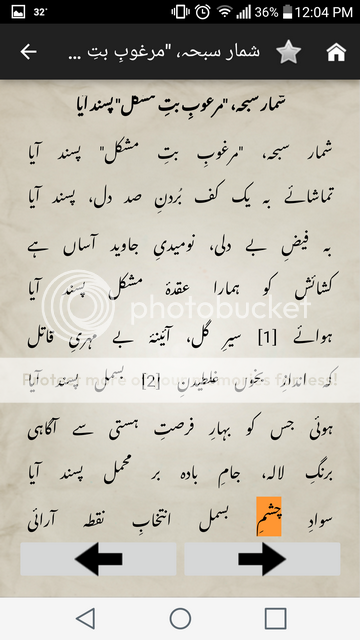 32°
36% 12:04 PM
شمار سبحہ، "مرغوبِ بتِ ...
شمار سبحہ، "مرغوبِ بتِ مشکل" پسند آیا
شمار سبحہ، "مرغوبِ بتِ مشکل" پسند آیا
تماشائے بہ یک کف بُردنِ صد دل، پسند آیا
بہ فیضِ بے دلی، نومیدیِ جاوید آساں ہے
کشائش کو ہمارا عقدۂ مشکل پسند آیا
photobucket
ہوائے [1] سیرِ گل، آئینۂ بے مہریِ قاتل
کہ اندازِ بخوں غلطیدنِ [2] بسمل پسند آیا
ہوئی جس کو بہارِ فرصتِ ہستی سے آگاہی
برنگِ لالہ، جامِ بادہ بر محمل پسند آیا
سوادِ چشمِ بسمل انتخابِ نقطہ آرائی